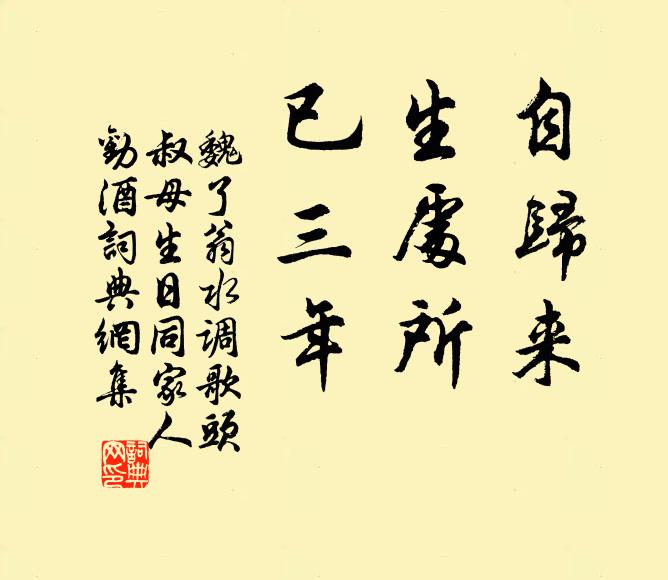 自歸来
生處所
已三年
魏了翁水调歌頭
叔母生日同家人
勸酒詞典網集
詞典
网印